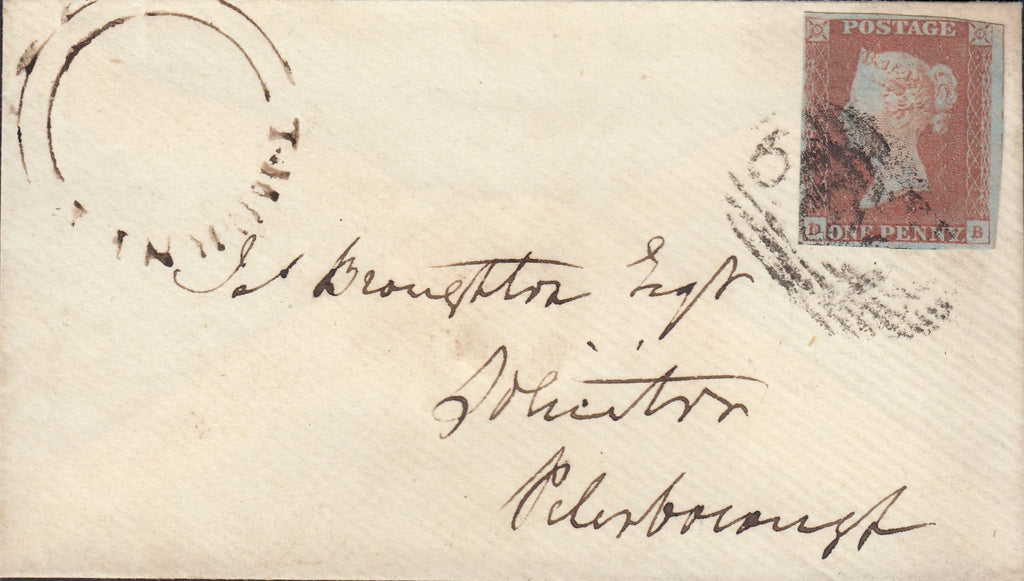 POSTAGE
D ONE PENNY B
Js Broughton Esqr
Solicitor
Peterborough